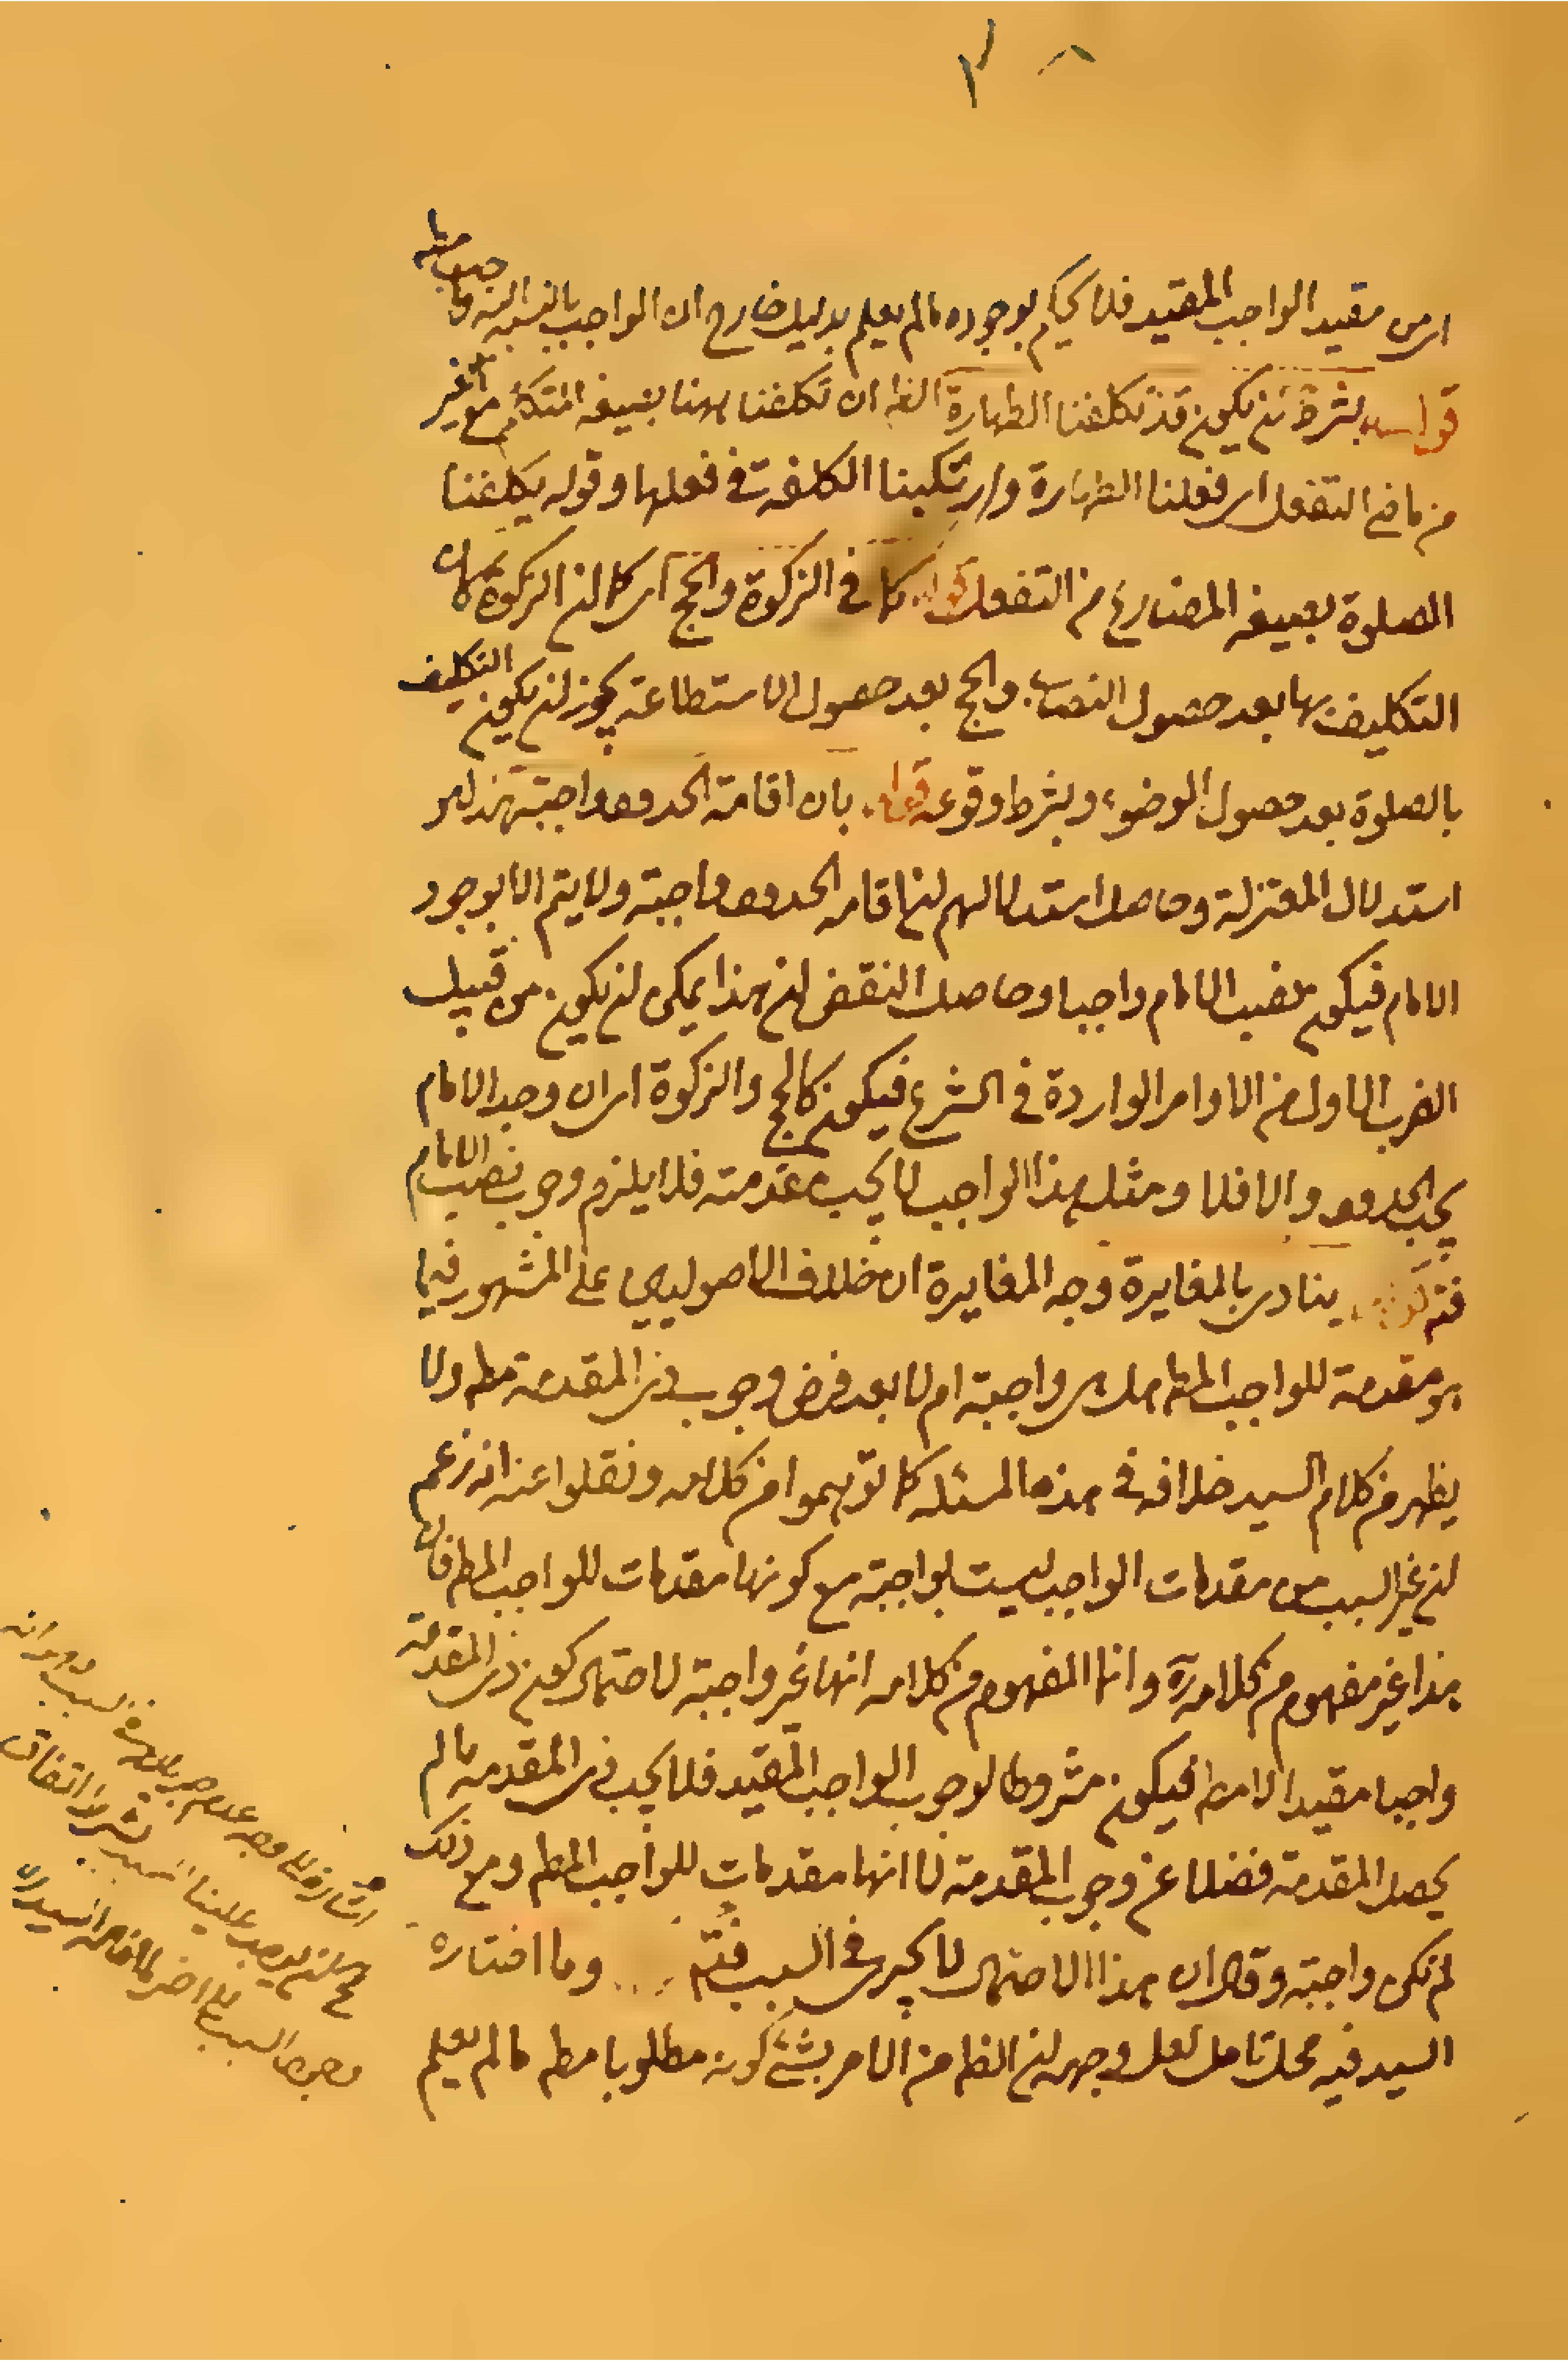 اى من مقيد الواجب المقيد فلا يحكم بوجوده ما لم يعلم بدليل خارج ان الواجب بالنسبة اليه واجب مط
قوله بشرط ان يكون قد تكلفنا الطهارة الظ ان تكلفنا ههنا بصيغة المتكلم مع الغير
من ماضى التفعل اى فعلنا الطهارة وارتكبنا الكلفة فى فعلها وقوله يكلفنا
الصلوة بصيغة المضارع من التفعيل قوله كما فى الزكوة والحج اى كما ان الزكوة كان
التكليف بها بعد حصول النصاب والحج بعد حصول الاستطاعة يجوز ان يكون التكليف
بالصلوة بعد حصول الوضوء وبشرط وقوعه قوله بان اقامة الحدود واجبة هذا هو
استدلال المعتزلة وحاصل استدلالهم ان اقامة الحدود واجبة ولا يتم الا بوجود
الامام فيكون نصب الامام واجبا وحاصل النقض ان هذا يمكن ان يكون من قبيل
الضرب الاول من الاوامر الواردة فى الشرع فيكون كالحج والزكوة اى ان وجد الامام
يجب الحدود والا فلا ومثل هذا الواجب لا يجب مقدمته فلا يلزم وجوب نصب الامام
فتم قوله ينادى بالمغايرة وجه المغايرة ان خلاف الاصوليين على المشهور فيما
هو مقدمة للواجب المط هل هى واجبة ام لا بعد فرض وجوب ذى المقدمة مط ولا
يظهر من كلام السيد خلافه فى هذه المسئلة كما توهموا من كلامه ونقلوا عنه انه زعم
ان غير السبب من مقدمات الواجب ليست بواجبة مع كونها مقدمات للواجب المط فان
هذا غير مفهوم من كلامه ره وانما المفهوم من كلامه انها غير واجبة لاحتمال كون ذى المقدمة
واجبا مقيدا لا مط فيكون مشروطا لوجوب الواجب المقيد فلا يجب ذى المقدمة ما لم
يحصل المقدمة فضلا عن وجوب المقدمة لا انها مقدمات للواجب المط ومع ذلك
لم تكن واجبة وقال ان هذا الاحتمال لا يجرى فى السبب فتم وما اختاره
السيد فيه محل تامل لعل وجهه ان الظ من الامر بشئ كونه مطلوبا مط ما لم يعلم